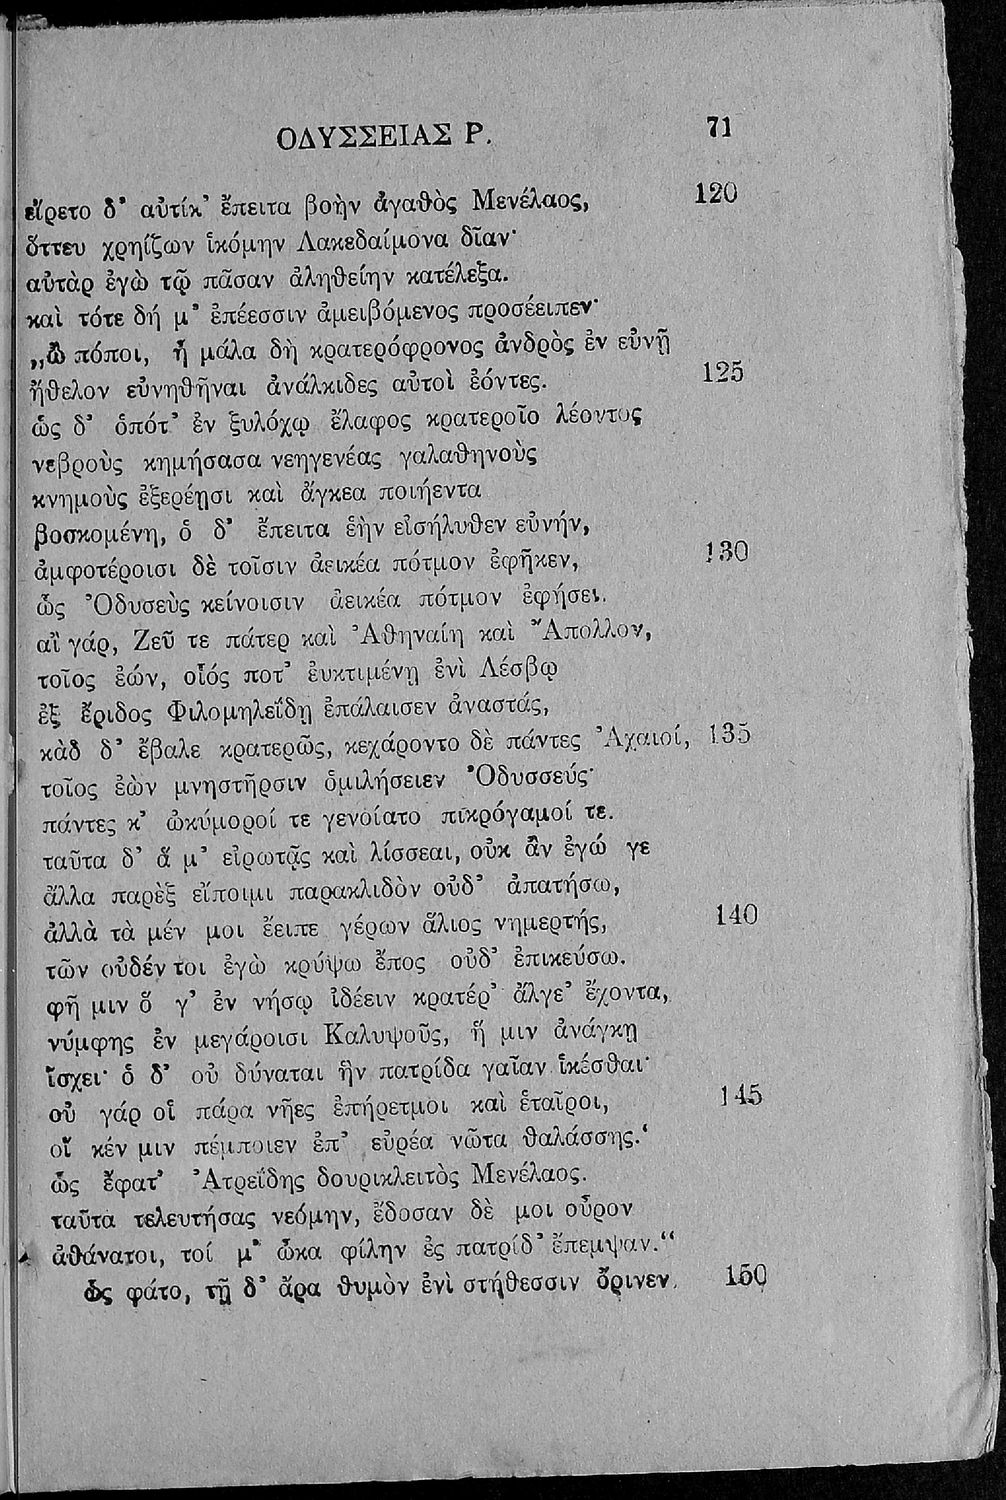 ΟΔΥΣΣΕΙΑΣ Ρ. 71
εἴρετο δ’ αὐτίκ’ ἔπειτα βοὴν ἀγαθὸς Μενέλαος, 120
ὅττευ χρηίζων ἱκόμην Λακεδαίμονα δῖαν·
αὐτὰρ ἐγὼ τῷ πᾶσαν ἀληθείην κατέλεξα.
καὶ τότε δή μ’ ἐπέεσσιν ἀμειβόμενος προσέειπεν·
„ὦ πόποι, ἦ μάλα δὴ κρατερόφρονος ἀνδρὸς ἐν εὐνῇ
ἤθελον εὐνηθῆναι ἀνάλκιδες αὐτοὶ ἐόντες. 125
ὡς δ’ ὁπότ’ ἐν ξυλόχῳ ἔλαφος κρατεροῖο λέοντος
νεβροὺς κημήσασα νεηγενέας γαλαθηνοὺς
κνημοὺς ἐξερέῃσι καὶ ἄγκεα ποιήεντα
βοσκομένη, ὁ δ’ ἔπειτα ἑὴν εἰσήλυθεν εὐνήν,
ἀμφοτέροισι δὲ τοῖσιν ἀεικέα πότμον ἐφῆκεν, 130
ὣς Ὀδυσεὺς κείνοισιν ἀεικέα πότμον ἐφήσει.
αἲ γάρ, Ζεῦ τε πάτερ καὶ Ἀθηναίη καὶ Ἄπολλον,
τοῖος ἐών, οἷός ποτ’ ἐυκτιμένῃ ἐνὶ Λέσβῳ
ἐξ ἔριδος Φιλομηλεΐδῃ ἐπάλαισεν ἀναστάς,
κὰδ δ’ ἔβαλε κρατερῶς, κεχάροντο δὲ πάντες Ἀχαιοί, 135
τοῖος ἐὼν μνηστῆρσιν ὁμιλήσειεν Ὀδυσσεύς·
πάντες κ’ ὠκύμοροί τε γενοίατο πικρόγαμοί τε.
ταῦτα δ’ ἅ μ’ εἰρωτᾷς καὶ λίσσεαι, οὐκ ἂν ἐγώ γε
ἄλλα παρὲξ εἴποιμι παρακλιδὸν οὐδ’ ἀπατήσω,
ἀλλὰ τὰ μέν μοι ἔειπε γέρων ἅλιος νημερτής, 140
τῶν οὐδέν τοι ἐγὼ κρύψω ἔπος οὐδ’ ἐπικεύσω.
φῆ μιν ὅ γ’ ἐν νήσῳ ἰδέειν κρατέρ’ ἄλγε’ ἔχοντα,
νύμφης ἐν μεγάροισι Καλυψοῦς, ἥ μιν ἀνάγκῃ
ἴσχει· ὁ δ’ οὐ δύναται ἣν πατρίδα γαῖαν ἱκέσθαι·
οὐ γάρ οἱ πάρα νῆες ἐπήρετμοι καὶ ἑταῖροι, 145
οἵ κέν μιν πέμποιεν ἐπ’ εὐρέα νῶτα θαλάσσης.‘
ὣς ἔφατ’ Ἀτρεΐδης δουρικλειτὸς Μενέλαος.
ταῦτα τελευτήσας νεόμην, ἔδοσαν δὲ μοι οὖρον
ἀθάνατοι, τοί μ’ ὦκα φίλην ἐς πατρίδ’ ἔπεμψαν.“
ὣς φάτο, τῇ δ’ ἄρα θυμὸν ἐνὶ στήθεσσιν ὄρινεν. 150